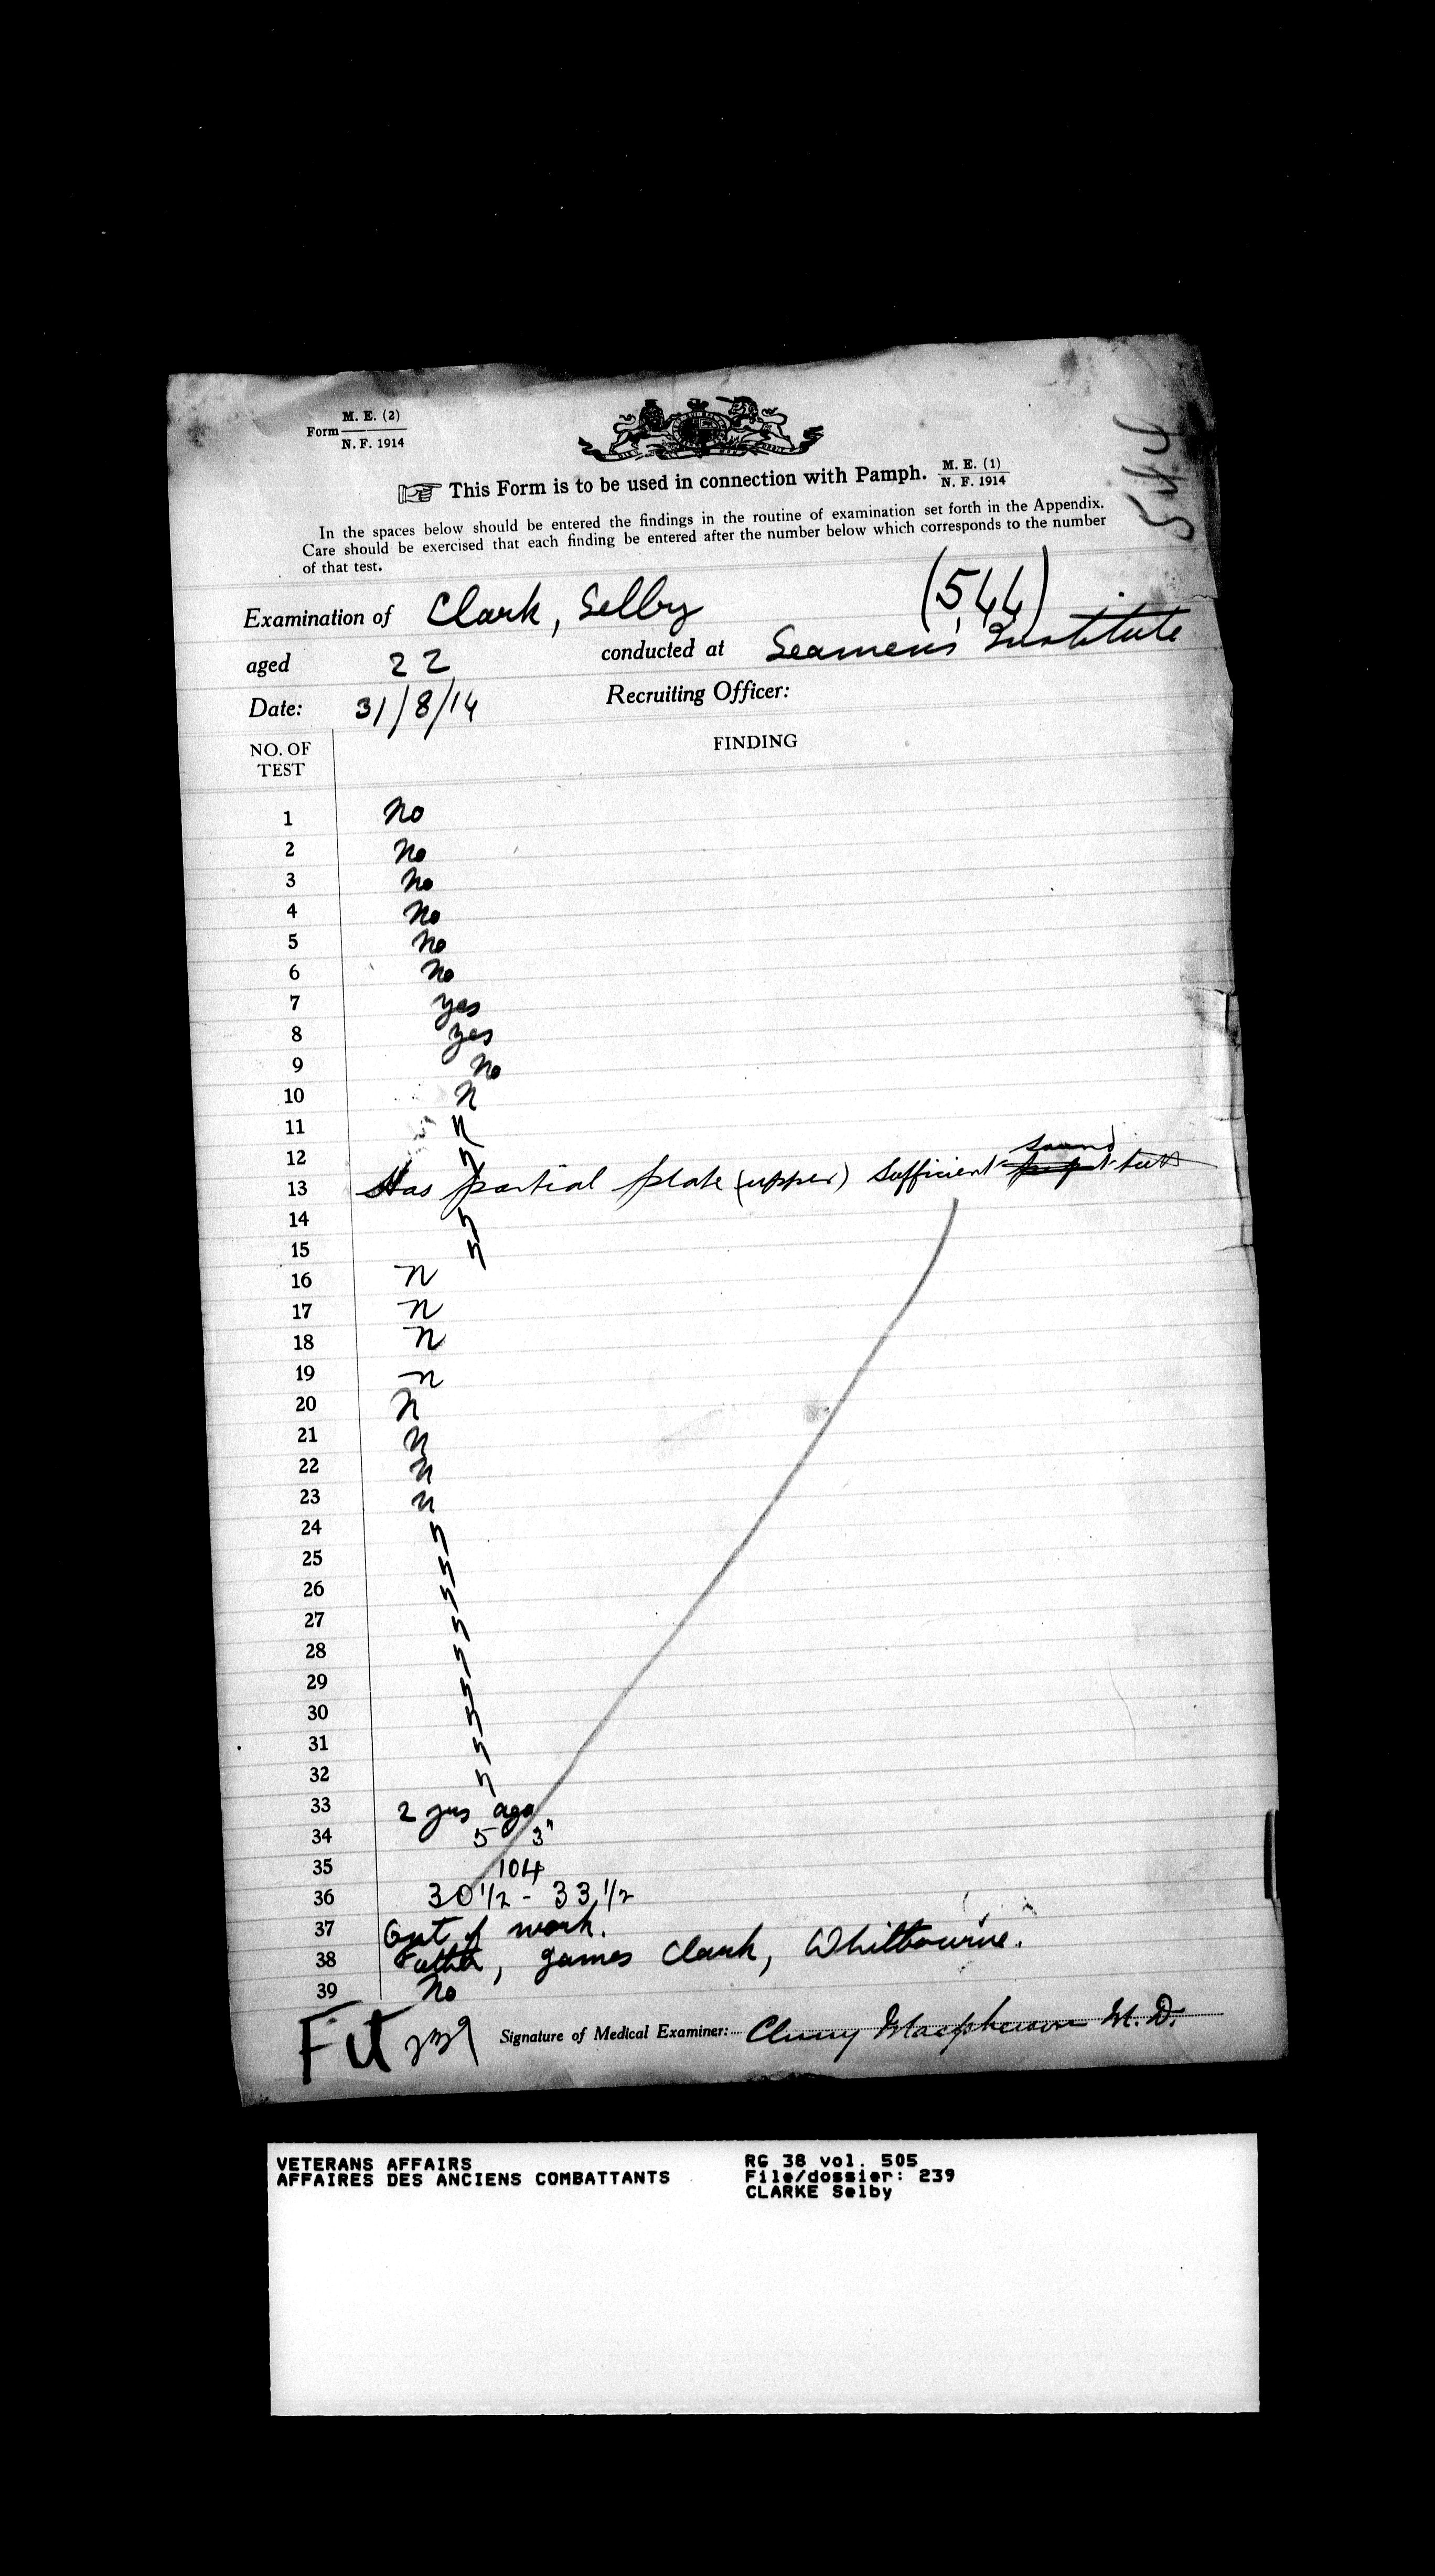 Form M. E. (2)
N. F. 1914
544
☞ This Form is to be used in connection with Pamph. M. E. (1)
N. F. 1914
In the spaces below should be entered the findings in the routine of examination set forth in the Appendix.
Care should be exercised that each finding be entered after the number below which corresponds to the number
of that test.
(544)
Examination of Clark, Selby
aged 22 conducted at Seamen's Institute
Date: 31/8/14 Recruiting Officer:
NO. OF TEST FINDING
1 No
2 No
3 No
4 No
5 No
6 No
7 yes
8 yes
9 No
10 N
11 N
12
13 Has partial plate (upper) sufficient sound teeth
14
15
16 n
17 n
18 n
19 n
20 N
21 N
22 N
23 n
24
25
26
27
28
29
30
31
32
33 2 yrs ago
34 5 3"
35 104
36 30 1/2 - 33 1/2
37 Out of work.
38 Father, James Clark, Whitbourne.
39 No
Fit
Signature of Medical Examiner: Cluny Macpherson M.D.
VETERANS AFFAIRS RG 38 vol. 505
AFFAIRES DES ANCIENS COMBATTANTS File/dossier: 239
CLARKE Selby